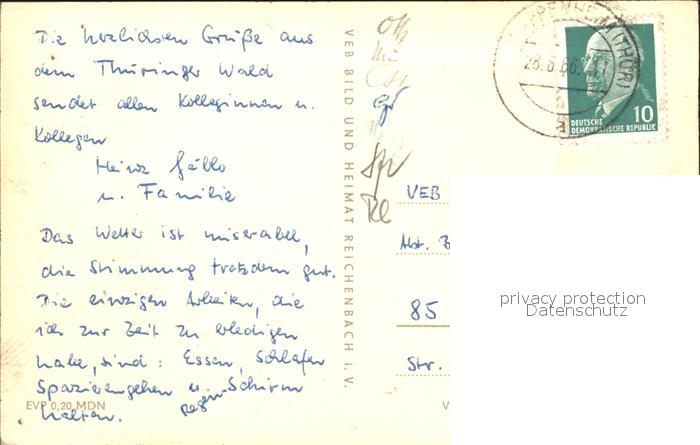 Die herzlichsten Grüße aus
dem Thüringer Wald
sendet allen Kolleginnen u.
Kollegen
Heinz
u. Familie
Das Wetter ist miserabel,
die Stimmung trotzdem gut.
Die einzigen Arbeiten, die
ich zur Zeit zu erledigen
habe, sind: Essen, Schlafen
Spazierengehen u. Schirm
Regen-
halten.
EVP 0,20 MDN
VEB BILD UND HEIMAT REICHENBACH i. V.
V
(THÜR)
10
DEUTSCHE
DEMOKRATISCHE REPUBLIK
VEB
Abt.
85
Str.
privacy protection
Datenschutz